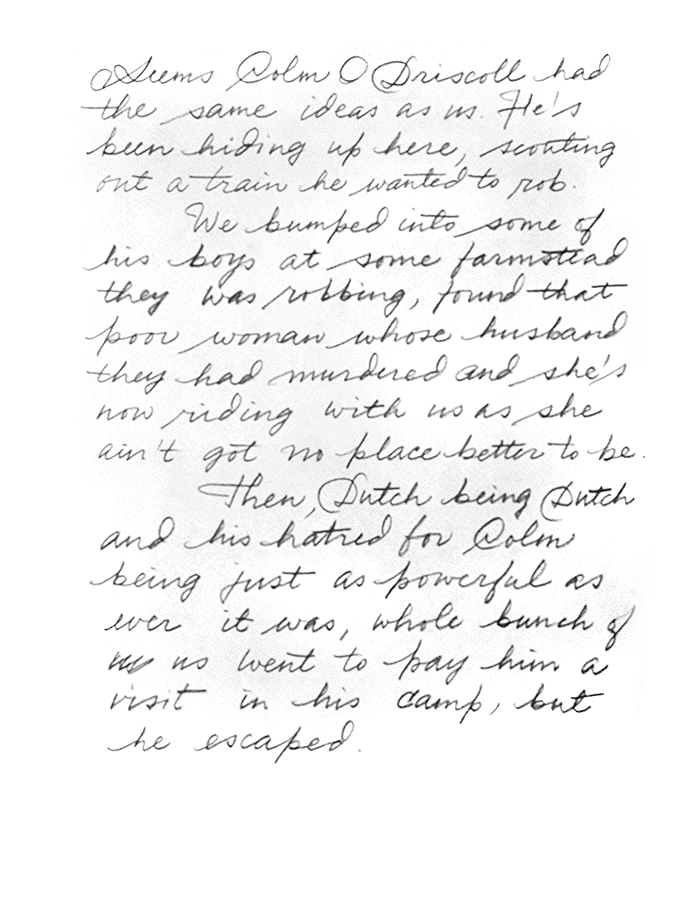 Seems Colm O Driscoll had
the same ideas as us. He's
been hiding up here, scouting
out a train he wanted to rob.
We bumped into some of
his boys at some farmstead
they was robbing, found that
poor woman whose husband
they had murdered and she's
now riding with us as she
ain't got no place better to be.
Then, Dutch being Dutch
and his hatred for Colm
being just as powerful as
ever it was, whole bunch of
us went to pay him a
visit in his camp, but
he escaped.